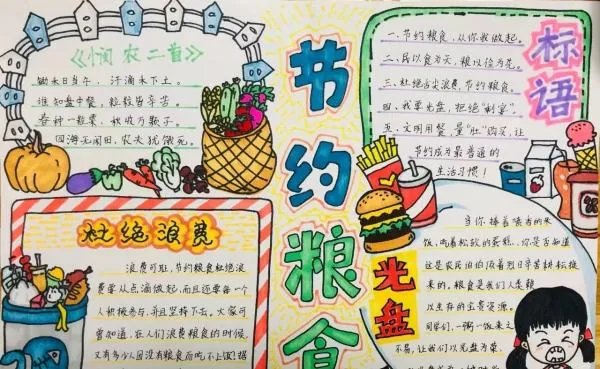 《悯农二首》
锄禾日当午，汗滴禾下土。
谁知盘中餐，粒粒皆辛苦。
春种一粒粟，秋收万颗子。
四海无闲田，农夫犹饿死。
杜绝浪费
浪费可耻，节约粮食杜绝浪
费要从点滴做起，而且还要每一个
人积极参与，并且坚持下去。大家可
曾知道，在人们浪费粮食的时候，
又有多少人因没有粮食而吃不上饭？据
节约粮食
标语
一、节约粮食，从你我做起。
二、民以食为天，粮以俭为先。
三、杜绝舌尖浪费，节约粮食。
四、我要光盘，拒绝"剩宴"。
五、文明用餐，量"肚"购买，让
节约成为最普通的
生活习惯！
光盘
当你捧着喷香的米
饭，啃着松软的蛋糕，你是否知道
这是农民伯伯顶着烈日辛苦耕耘换
来的。粮食是我们人类赖
以生存的宝贵资源。
同学们，一粥一饭来之
不易，让我们以光盘为荣，